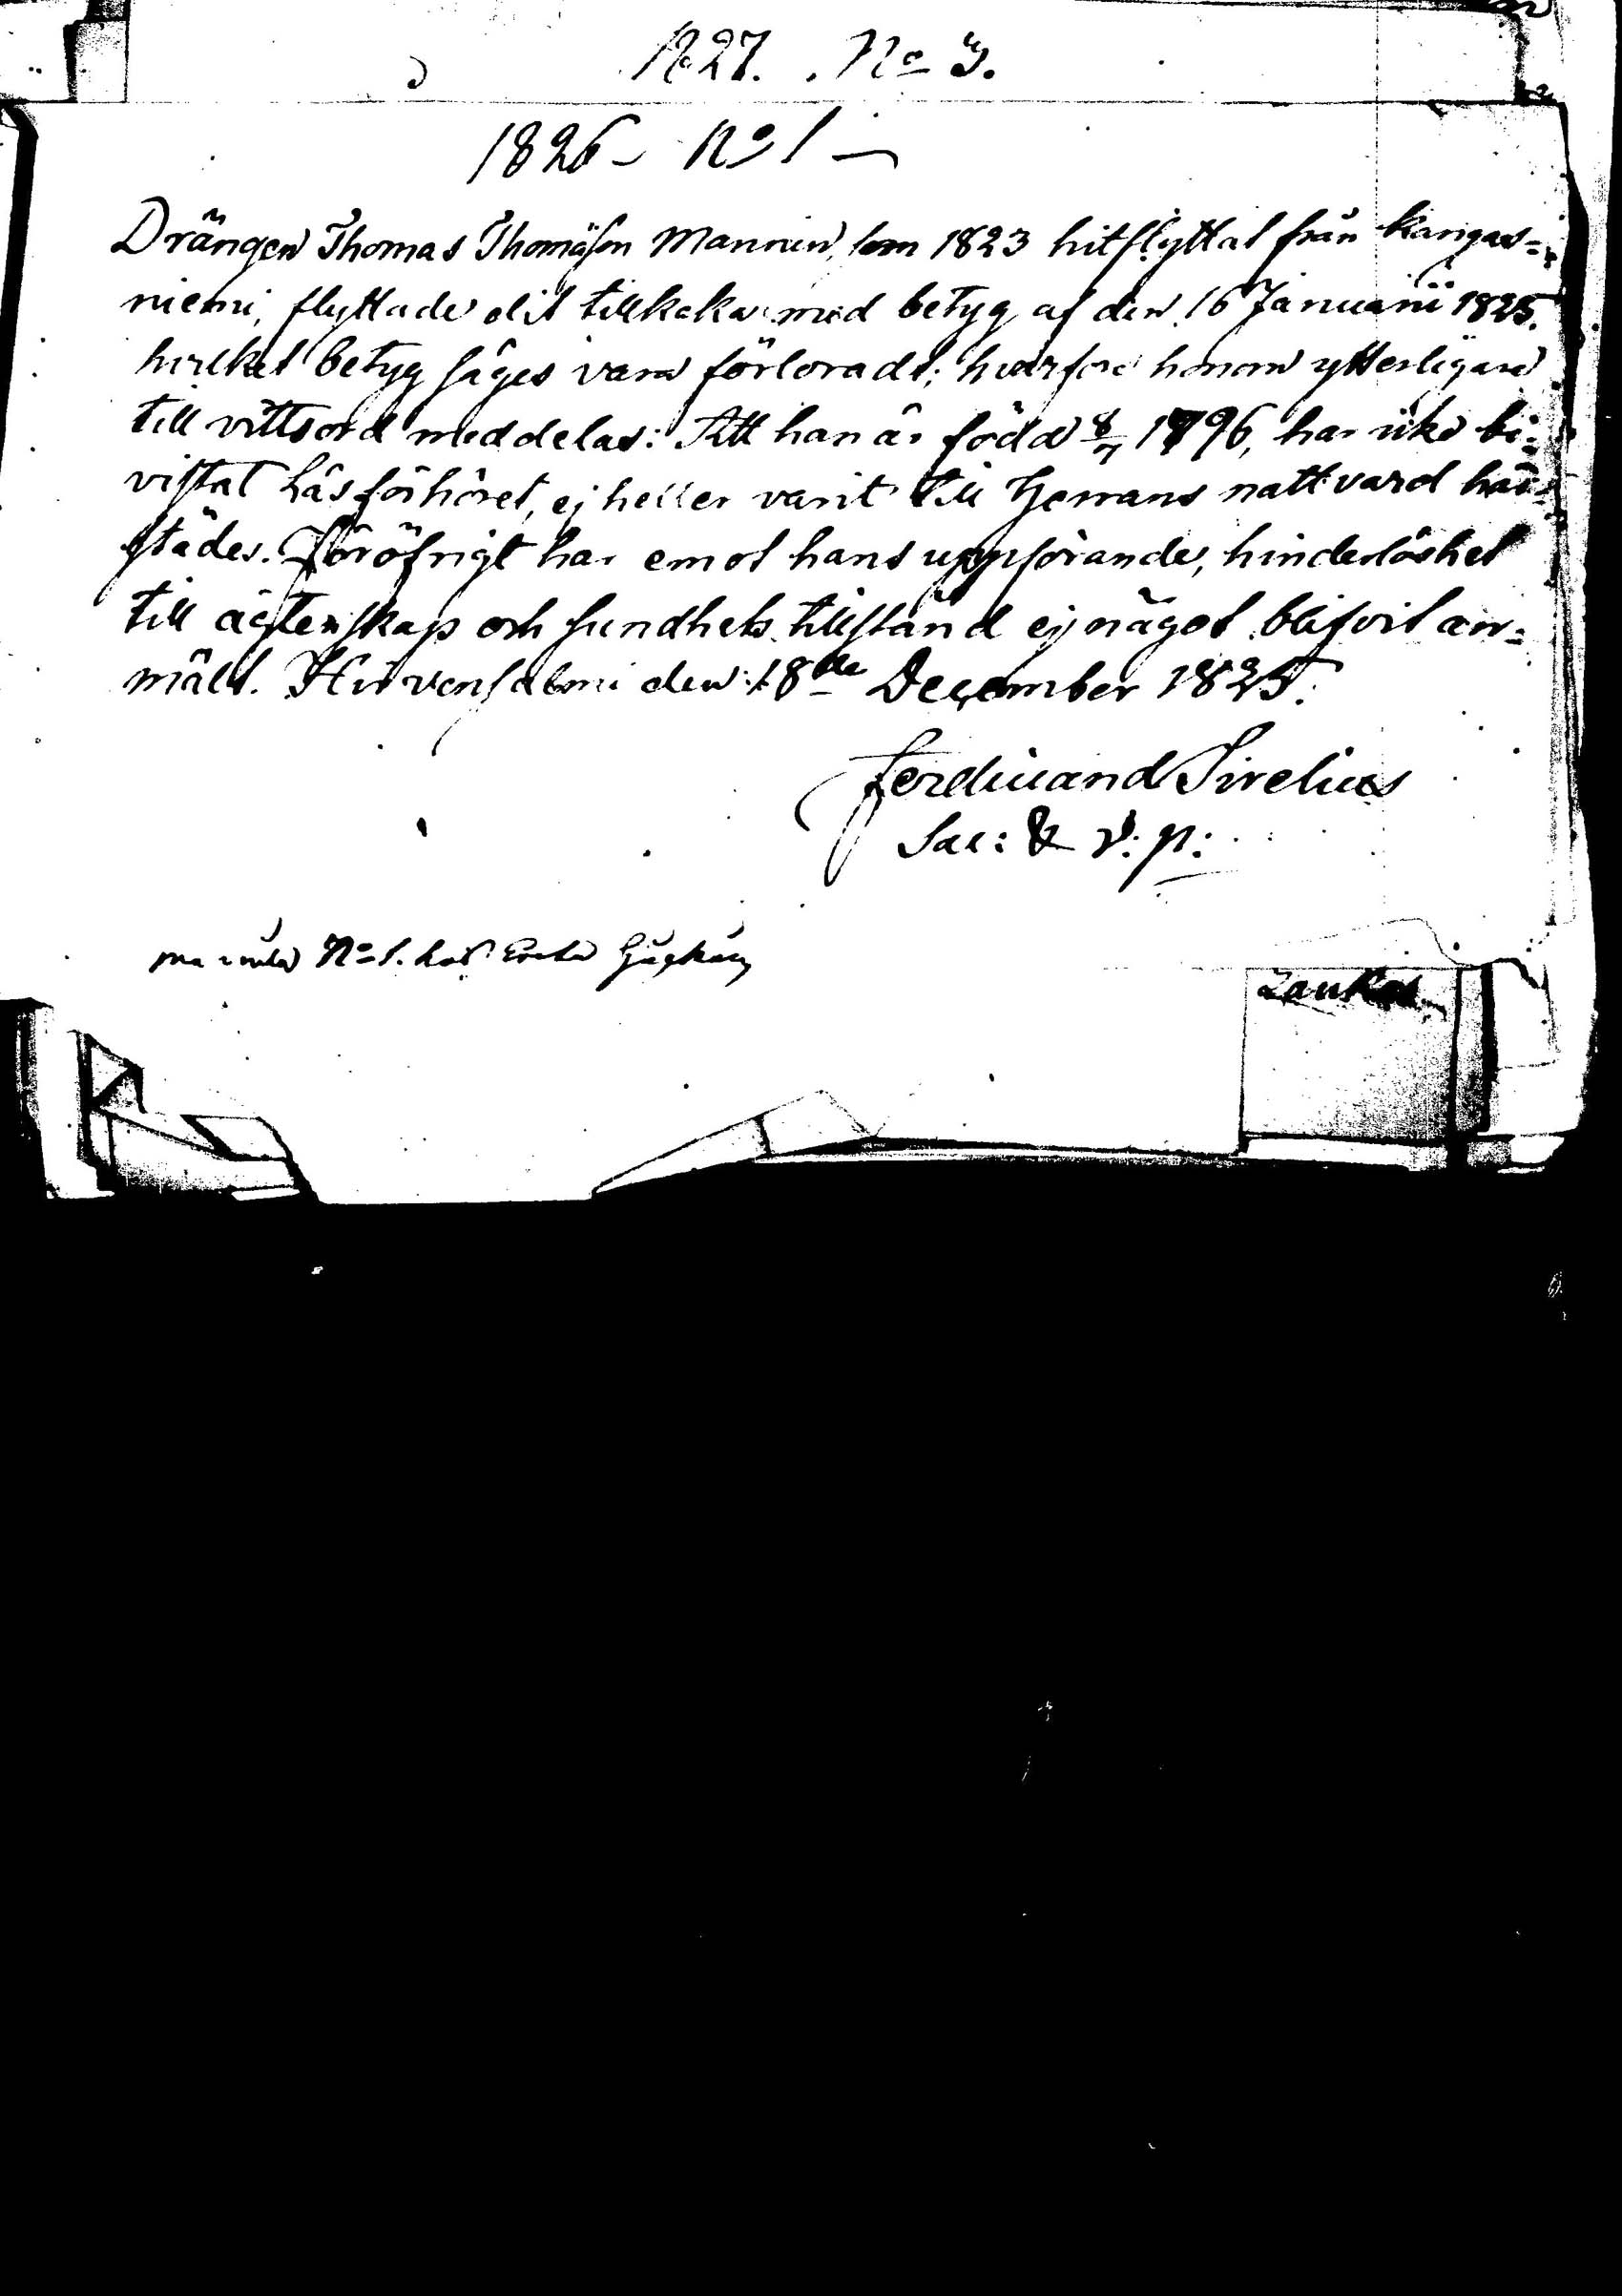 No 3.
1826 - No 1 -
Drängen Thomas Thomäson Mannin, som 1823 hitflyttat från Kangas=
niemi, flyttade dit tillbaka med betyg af den 16 Januarii 1825.
hvilket betyg säges vara förloradt; hvarfore honom ytterligare
till vittsord meddelas: Att han är född 8/7 1796, har icke bi=
vistat Läsförhöret, ej heller varit till Herrans nattvard här=
städes. Föröfrigt har emot hans uppförande, hinderlöshet
till ägtenskap och sundhets tillstånd ej något blifvit an=
mält. Hirvensalmi den 18de December 1825.
Ferdinand Sirelius
Sac: & v: p:
No 1.